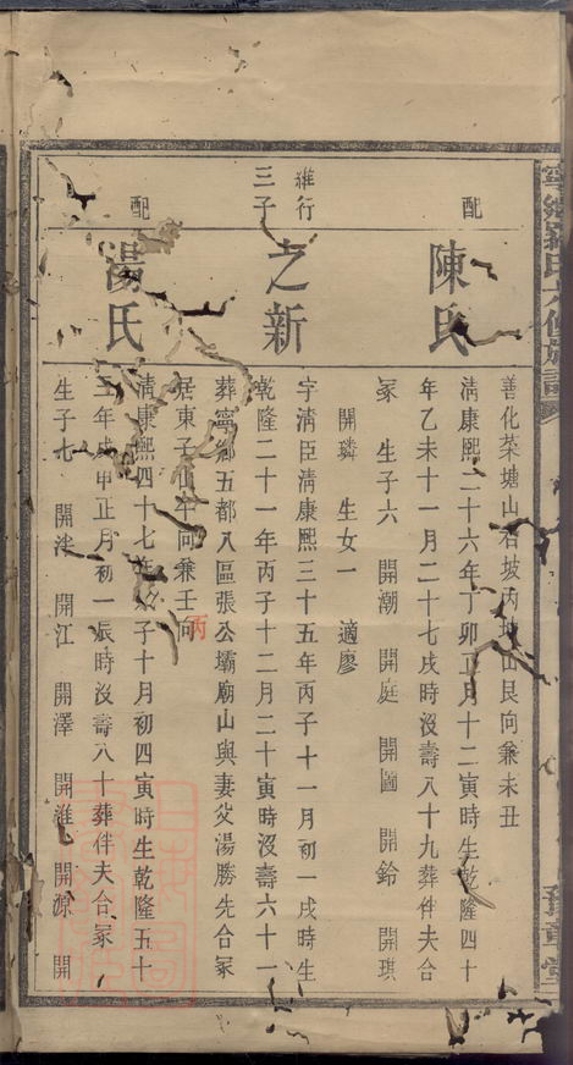 寧鄉羅氏六修族譜
豫章堂
善化菜塘山石坡丙坤山艮向兼未丑
配
陳氏
清康熙二十六年丁卯正月十二寅時生乾隆四十
年乙未十一月二十七戌時沒壽八十九葬伴夫合
冢 生子六 開潮 開庭 開圖 開鈴 開琪
開璘 生女一 適廖
維行
三子
之新
字清臣清康熙三十五年丙子十一月初一戌時生
乾隆二十一年丙子十二月二十寅時沒壽六十一
葬寧鄉五都八區張公壩廟山與妻父湯勝先合冢
居東子山午向兼壬向
丙
配
湯氏
清康熙四十七年 子十月初四寅時生乾隆五十
三年戊申正月初一辰時沒壽八十葬伴夫合冢
生子七 開泮 開江 開澤 開淮 開源 開